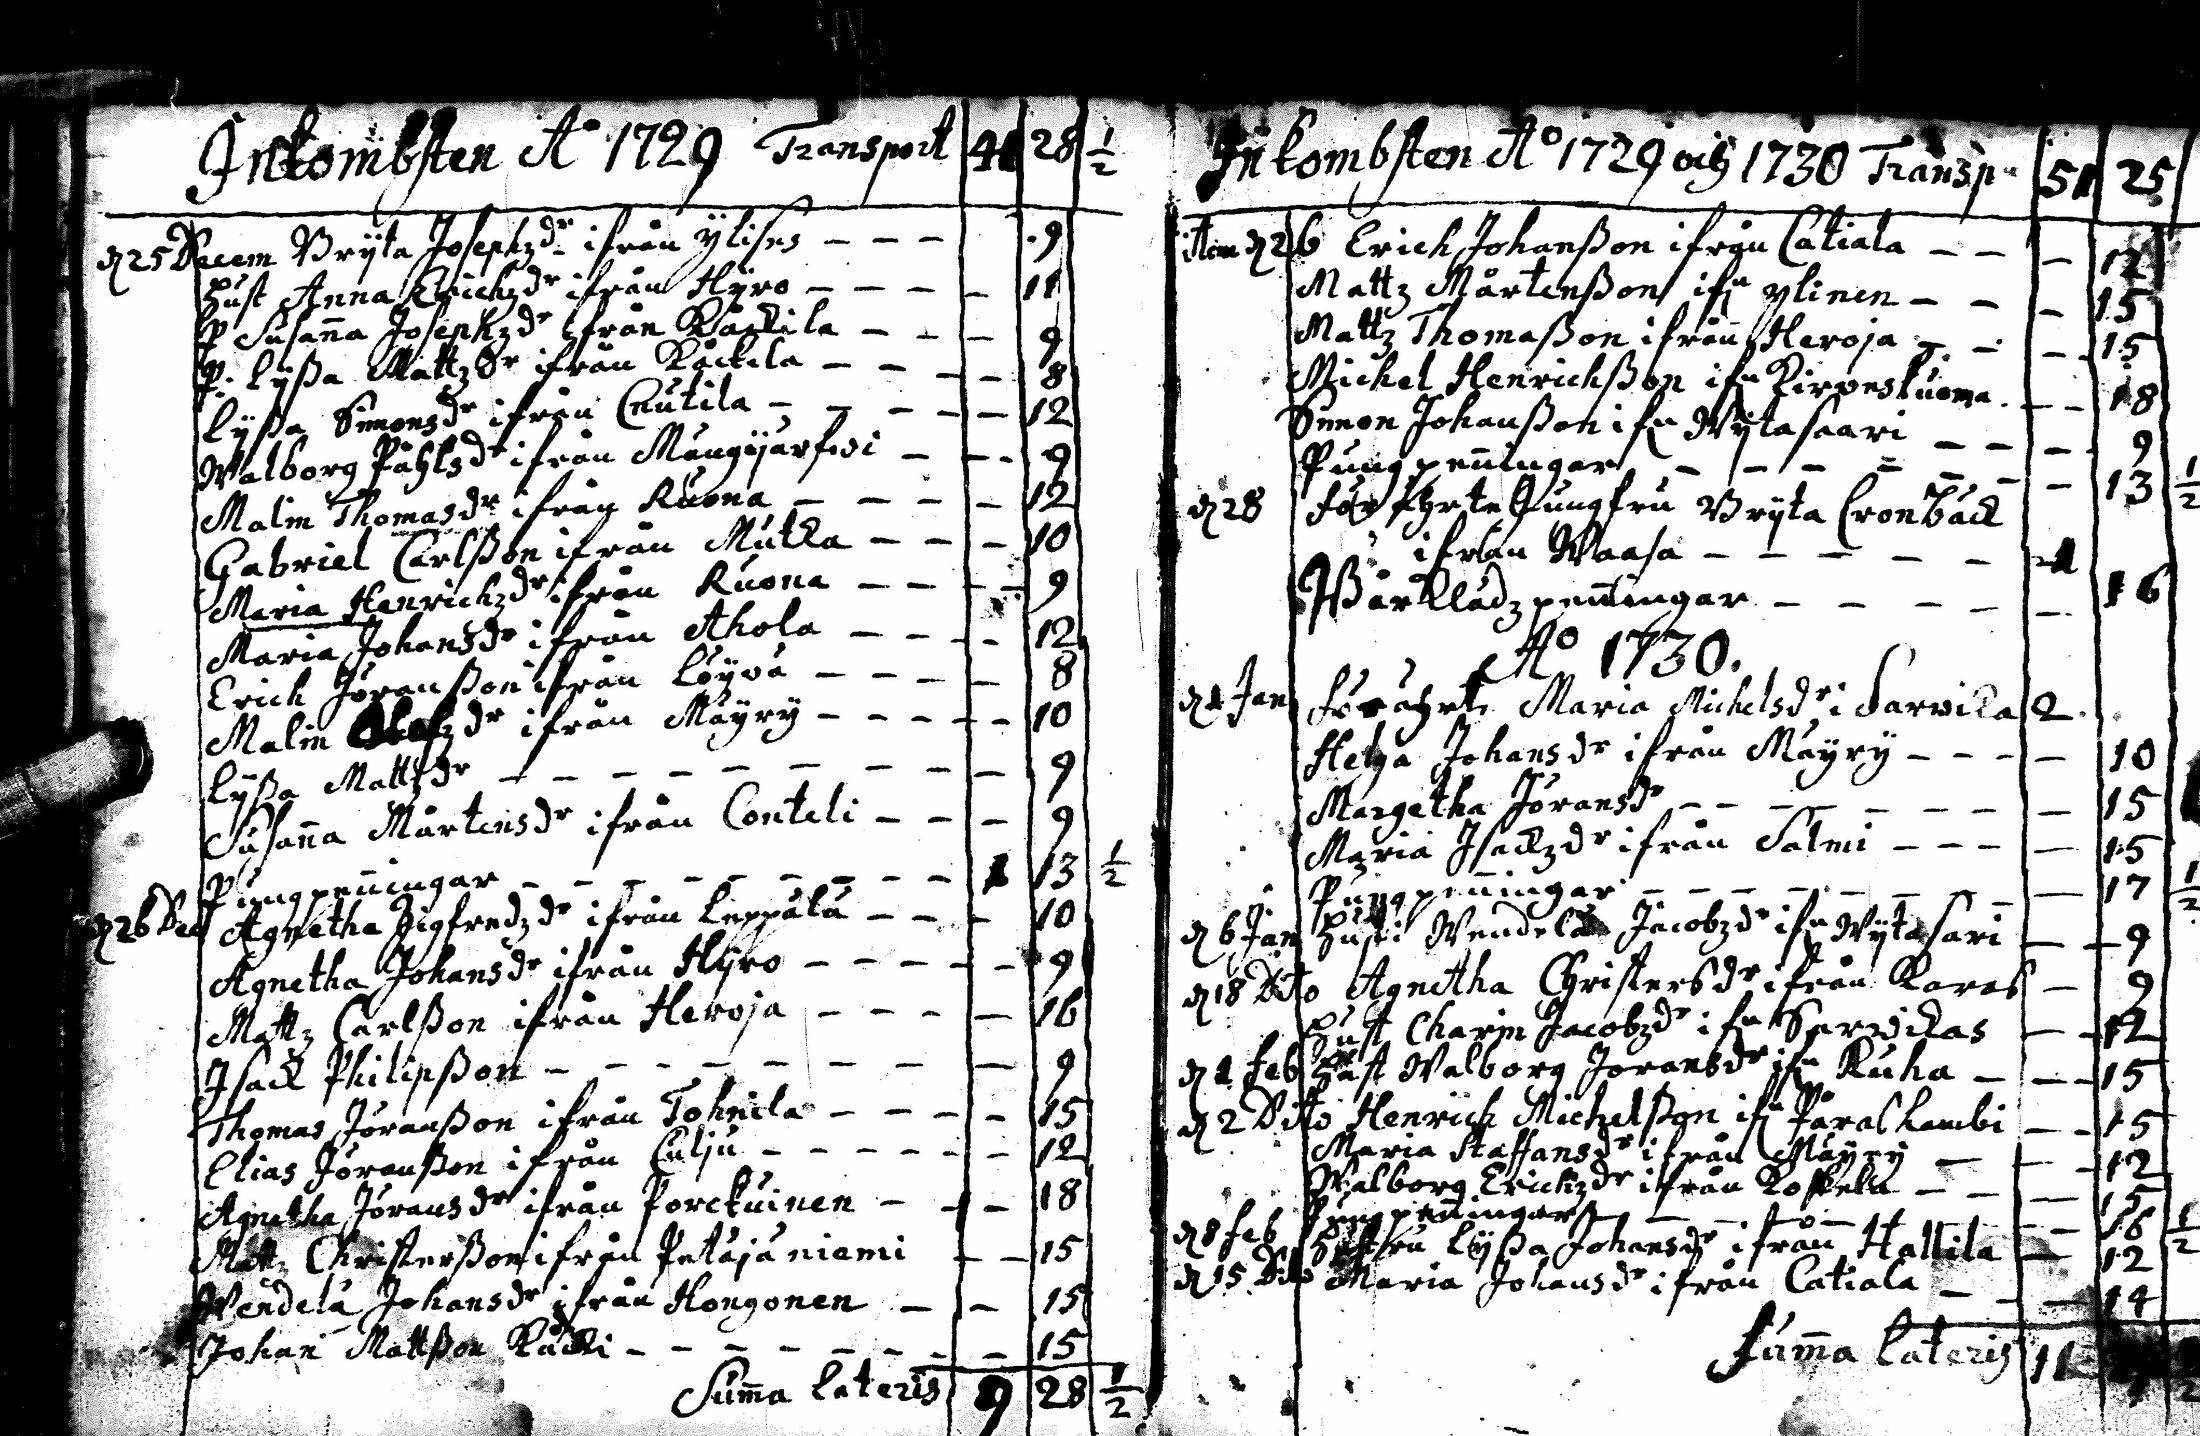 Inkombsten Aº 1729 Transport 41 28 ½
d 25 Decem Bryta Josephzdr ifrån ylises - - - 9
Hust Anna Erichzdr ifrån Hyro - - - - 11
P Susanna Josephzdr ifrån Käckila - - - 9
P. Lyßa Mattzdr ifrån Käckela - - - - 8
Lyßa Simonsdr ifrån Cnutila - - - - 12
Walborg Påhlsdr ifrån Mangijärfwi - - - 9
Malin Thomasdr ifrån Kuona - - - - 12
Gabriel Carlßon ifrån Mutka - - - - 10
Maria Henrichzdr ifrån Kuona - - - - 9
Maria Johansdr ifrån Ahola - - - - 12
Erich Jöranßon ifrån Löyvä - - - - 8
Malin ifrån Mäyry - - - - - 10
Lyßa Mattzdr - - - - - - - - - 9
Susanna Mårtensdr ifrån Conteli - - - 9
Pungpenningar - - - - - - - - 1 13 ½
d 26 Dec Agnetha Sigfredzdr ifrån Leppälä - - - 10
Agnetha Johansdr ifrån Hyro - - - - - 9
Mattz Carlßon ifrån Heroja - - - - 16
Isack Philipßon - - - - - - - - 9
Thomas Jöranßon ifrån Tohnila - - - - 15
Elias Jöranßon ifrån Culju - - - - - - 12
Agnetha Jöransdr ifrån Porckuinen - - - 18
Mattz Christerßon ifrån Petäjäniemi - - 15
Wendela Johansdr ifrån Hongonen - - 15
Johan Mattßon Käcki - - - - - - - - 15
Summa Lateris 9 28 ½
Inkombsten Aº 1729 och 1730 Transp 51 25
item d 26 Erich Johanßon ifrån Catiala - - - 12
Mattz Mårtenßon ifn ylinen - - - 15
Mattz Thomaßon ifrån Heroja - - - 15
Michel Henrichßon ifn Kirvesluoma - - 18
Simon Johanßon ifn Wytasaari - - - 9
Pungpenningar - - - - - - - 13 ½
d 28 för Jungfru Bryta Cronbäck
ifrån Waasa - - - - - 1
Ißärklädz penningar - - - - - 16
Aº 1730.
d 1 Jan Maria Michelsdr i Sarvika 2
Helga Johansdr ifrån Mäyry - - - - 10
Margetha Jöransdr - - - - - - - 15
Maria Isackzdr ifrån Salmi - - - - 15
Pungpenningar - - - - - - - 17 ½
d 6 Jan Hust: Wendela Jacobzdr ifn Wytasari - - 9
d 18 Dito Agnetha Christersdr ifrån Karas - 9
Hust Charin Jacobzdr ifn Sarvickas - - 12
d 1 Feb Hust Walborg Jöransdr ifn Kuha - - - 15
d 2 Dito Henrich Michelßon ifn Påraslambi - - 15
Maria Staffansdr ifrån Mäyry - - - 12
Walborg Erichzdr ifrån Koskela - - - 15
Pungpenningar - - - - - - 16 ½
d 8 feb Lyßa Johansdr ifrån Hallila - 12
d 15 Dito Maria Johansdr ifrån Catiala - - - 14
Summa Lateris 11